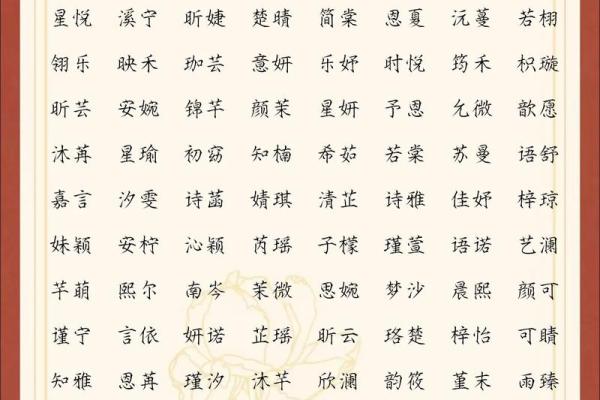 星悦 溪宁 昕婕 楚晴 简棠 恩夏 沅蔓 若栩
翎乐 映禾 珈芸 意妍 乐妤 时悦 筠禾 枳璇
昕芸 安婉 锦芊 颜茉 星妍 予恩 允微 歆愿
沐苒 星瑜 初窈 知楠 希茹 若棠 苏曼 语舒
嘉言 汐雯 诗菡 婧琪 清芷 诗雅 佳妤 梓琼
姝颖 安柠 沁颖 芮瑶 子檬 瑾萱 语诺 艺澜
芊萌 熙尔 南岑 茉微 思婉 梦沙 晨熙 颜可
谨宁 言依 妍诺 芷瑶 昕云 珞楚 梓怡 可睛
知雅 恩苒 瑾汐 沐芊 欣澜 韵筱 堇末 雨臻